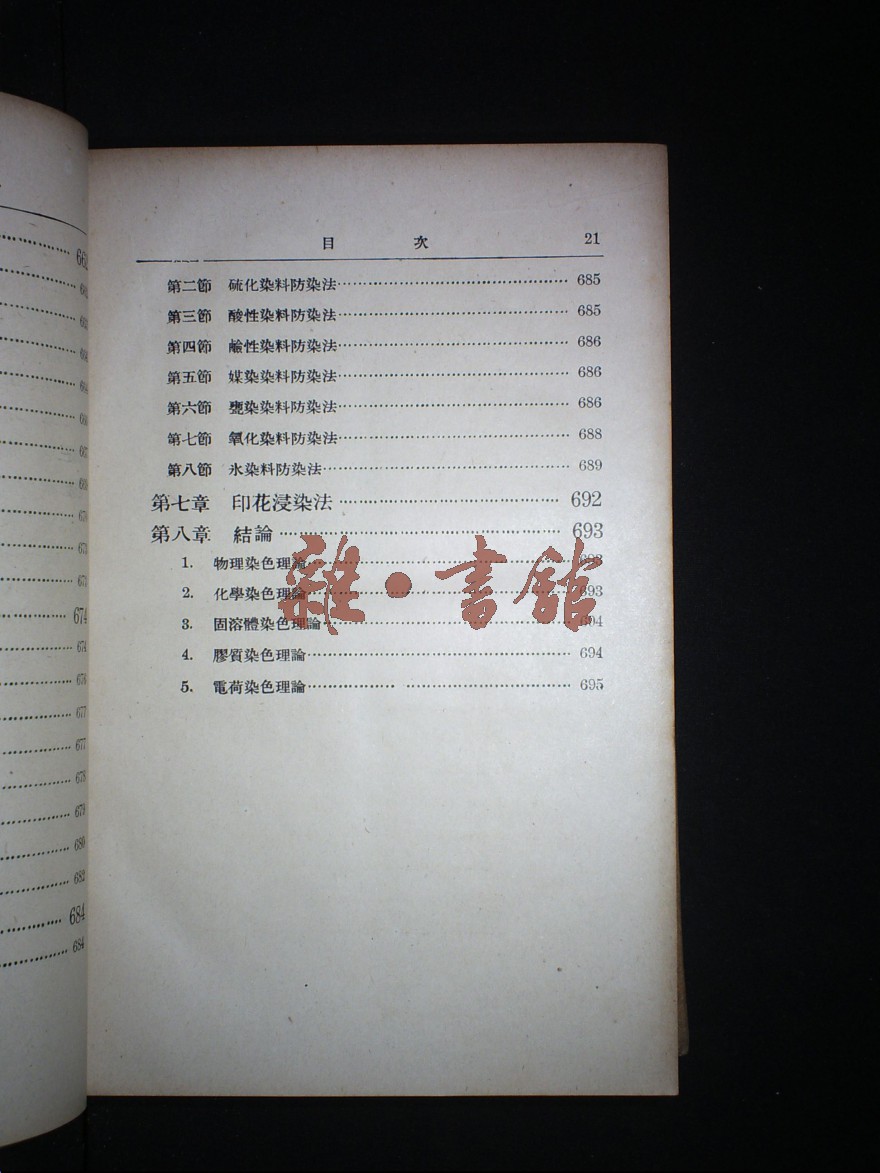 目 次 21
第二節 硫化染料防染法 685
第三節 酸性染料防染法 685
第四節 鹼性染料防染法 686
第五節 媒染染料防染法 686
第六節 甕染染料防染法 686
第七節 氧化染料防染法 688
第八節 氷染料防染法 689
第七章 印花浸染法 692
第八章 結論 693
1. 物理染色理論 693
2. 化學染色理論 693
3. 固溶體染色理論 694
4. 膠質染色理論 694
5. 電荷染色理論 695
雜·書館
674
674
676
677
677
678
679
680
682
684
684